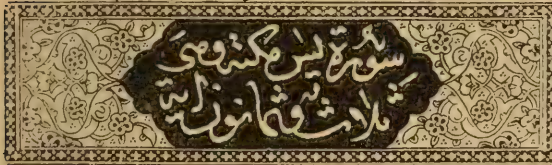 سورة يس مكية وهي
ثلاث وثمانون اية